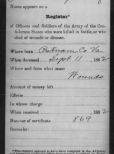 Name appears on a
Register
of Officers and Soldiers of the Army of the Confederate States who were killed in battle, or who
died of wounds or disease.
Where born Putnam Co Va
When deceased Sept 11 1862
Where and from what cause
Wounds
Amount of money left
Effects
In whose charge
When received 186
Number of certificate 869
Remarks: